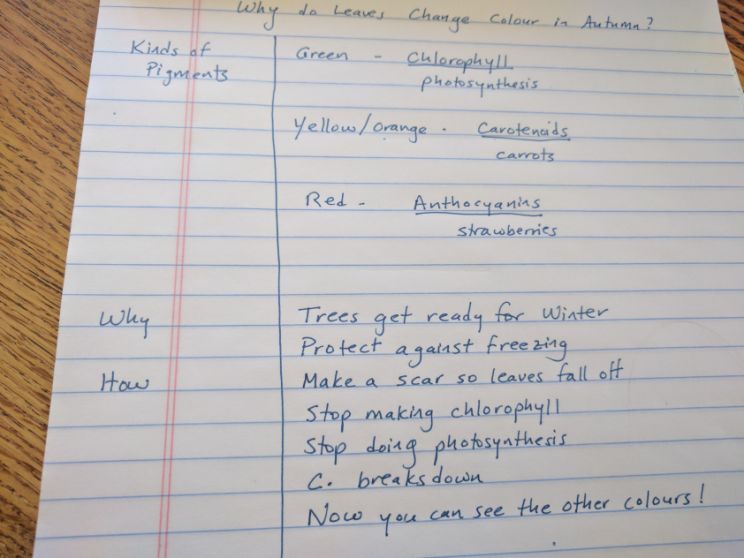 Why do Leaves Change Colour in Autumn?
Kinds of
Pigments
Green - Chlorophyll
photosynthesis
Yellow/orange - Carotenoids
carrots
Red - Anthocyanins
strawberries
Why
Trees get ready for Winter
Protect against freezing
How
Make a scar so leaves fall off
Stop making chlorophyll
Stop doing photosynthesis
C. breaksdown
Now you can see the other colours!